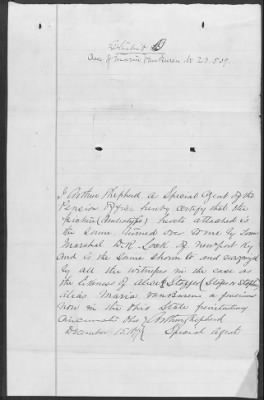 Exhibit D
Case of Maria VanBuren No 27.509
I Arthur Shepherd a Special Agent of the
Pension Office hereby certify that the
picture (Ambrotype) hereto attached is
the same turned over to me by
Marshal D.R. Lock of Newport Ky
and is the same shown to and
by all the witnesses in the case as
the likeness of Alice Stogel Stoges or
Alias Maria VanBuren a pensioner
now in the Ohio State Penitentiary
Cincinnati Ohio Arthur Shepherd
December 15 Special Agent